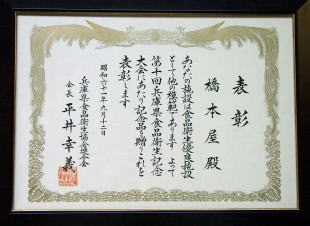 表彰
橋本屋殿
あなたの施設は食品衛生優良施設
として他の模範であります よって
第十回兵庫県食品衛生記念
大会にあたり記念品を贈りこれを
表彰します
昭和六十一年六月十二日
兵庫県食品衛生協会連合会
会長 平井幸義